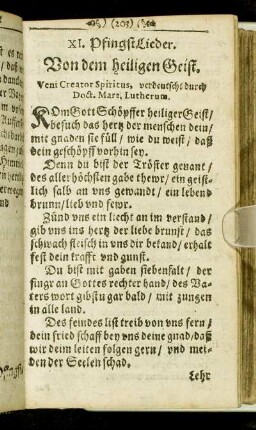 (203)
XI. PfingstLieder.
Von dem heiligen Geist.
Veni Creator Spiritus, verdeutscht durch
Doct. Mart. Lutherum.
KOm Gott Schöpffer heiliger Geist/
besuch das hertz der menschen dein/
mit gnaden sie füll/ wie du weist/ daß
dein geschöpff vorhin sey.
Denn du bist der Tröster genant/
des allerhöchsten gabe thewr/ ein geist-
lich salb an vns gewandt/ ein lebend
brunn/lieb vnd fewr.
Zünd vns ein liecht an im verstand/
gib vns ins hertz der liebe brunst/ das
schwach fleisch in vns dir bekand/ erhalt
fest dein krafft vnd gunst.
Du bist mit gaben siebenfalt/ der
fingr an Gottes rechter hand/ des Va-
ters wort gibstu gar bald/ mit zungen
in alle land.
Des feindes list treib von vns fern/
dein fried schaff bey vns deine gnad/daß
wir deim leiten folgen gern/ vnd mei-
den der Seelen schad.
Lehr